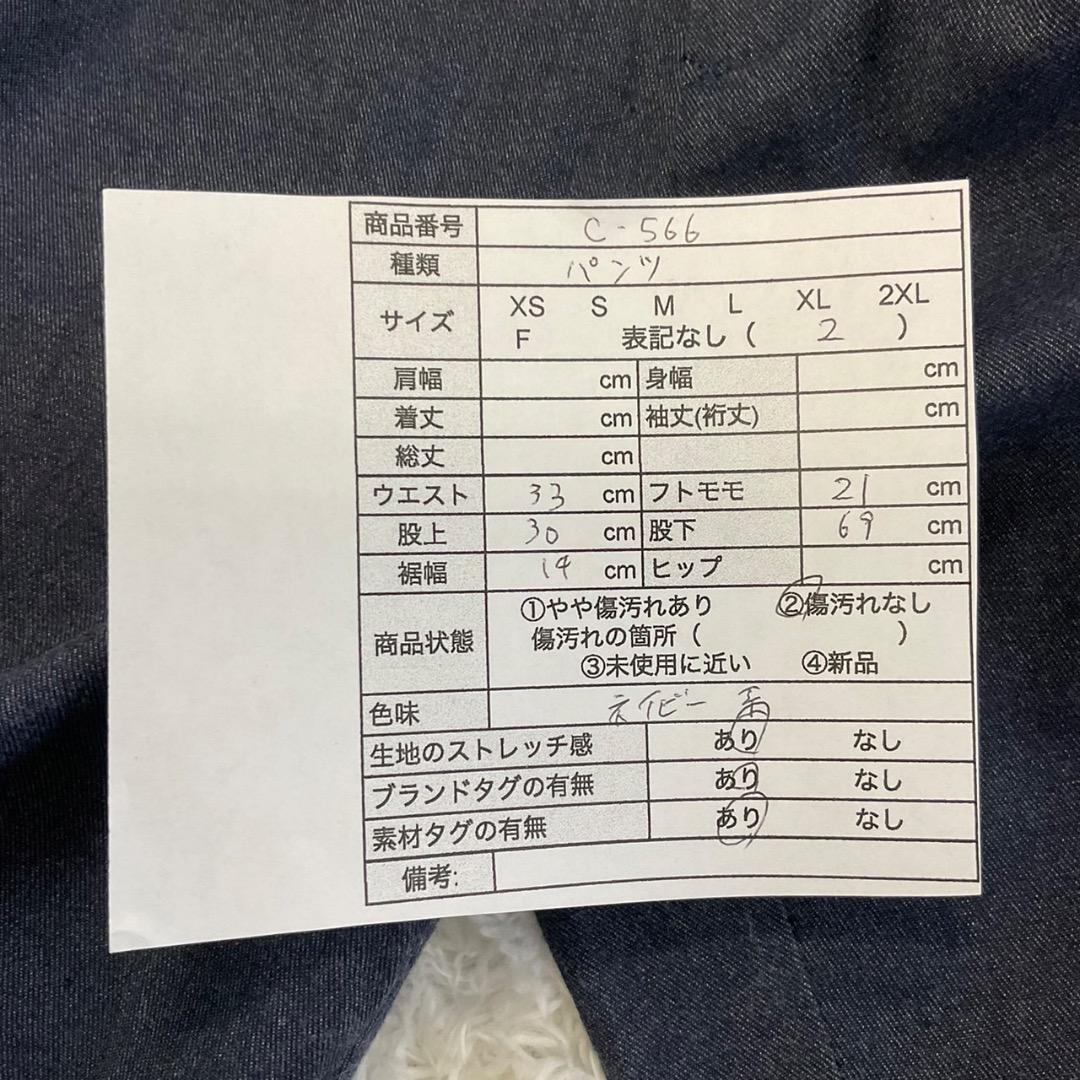 商品番号 C-566
種類 パンツ
サイズ XS S M L XL 2XL
F 表記なし ( 2 )
肩幅 cm 身幅 cm
着丈 cm 袖丈(裄丈) cm
総丈 cm
ウエスト 33 cm フトモモ 21 cm
股上 30 cm 股下 69 cm
裾幅 14 cm ヒップ cm
商品状態 ①やや傷汚れあり ②傷汚れなし
傷汚れの箇所 ( )
③未使用に近い ④新品
色味 ネイビー系
生地のストレッチ感 あり なし
ブランドタグの有無 あり なし
素材タグの有無 あり なし
備考: